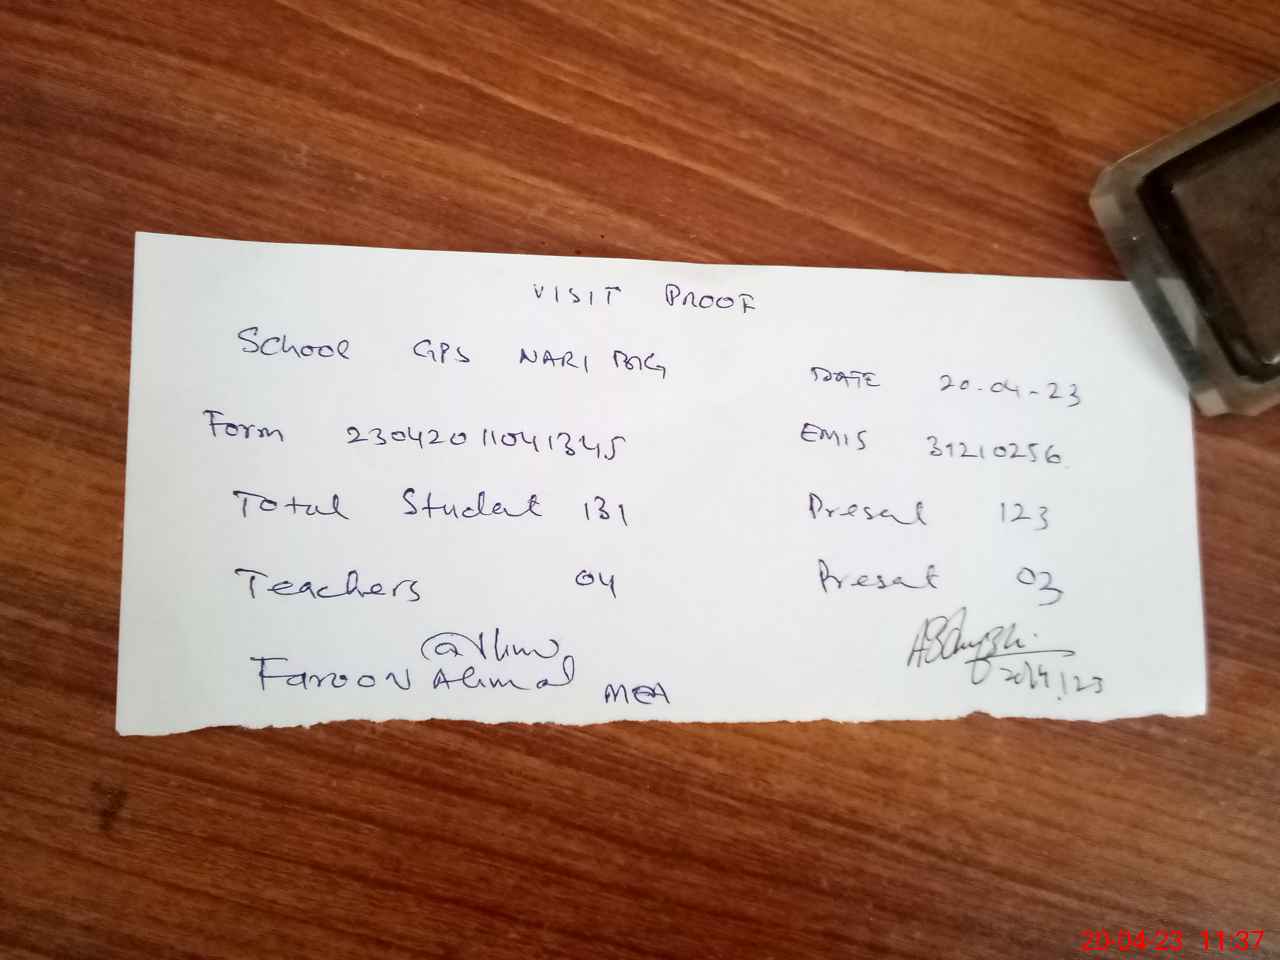 VISIT PROOF
School GPS NARI BIG
DATE 20-04-23
Form 23042011041345
EMIS 31210256
Total Studet 131
Preset 123
Teachers 04
Preset 03
Farooq Ahmad MEA
20/4/23
20-04-23 11:37